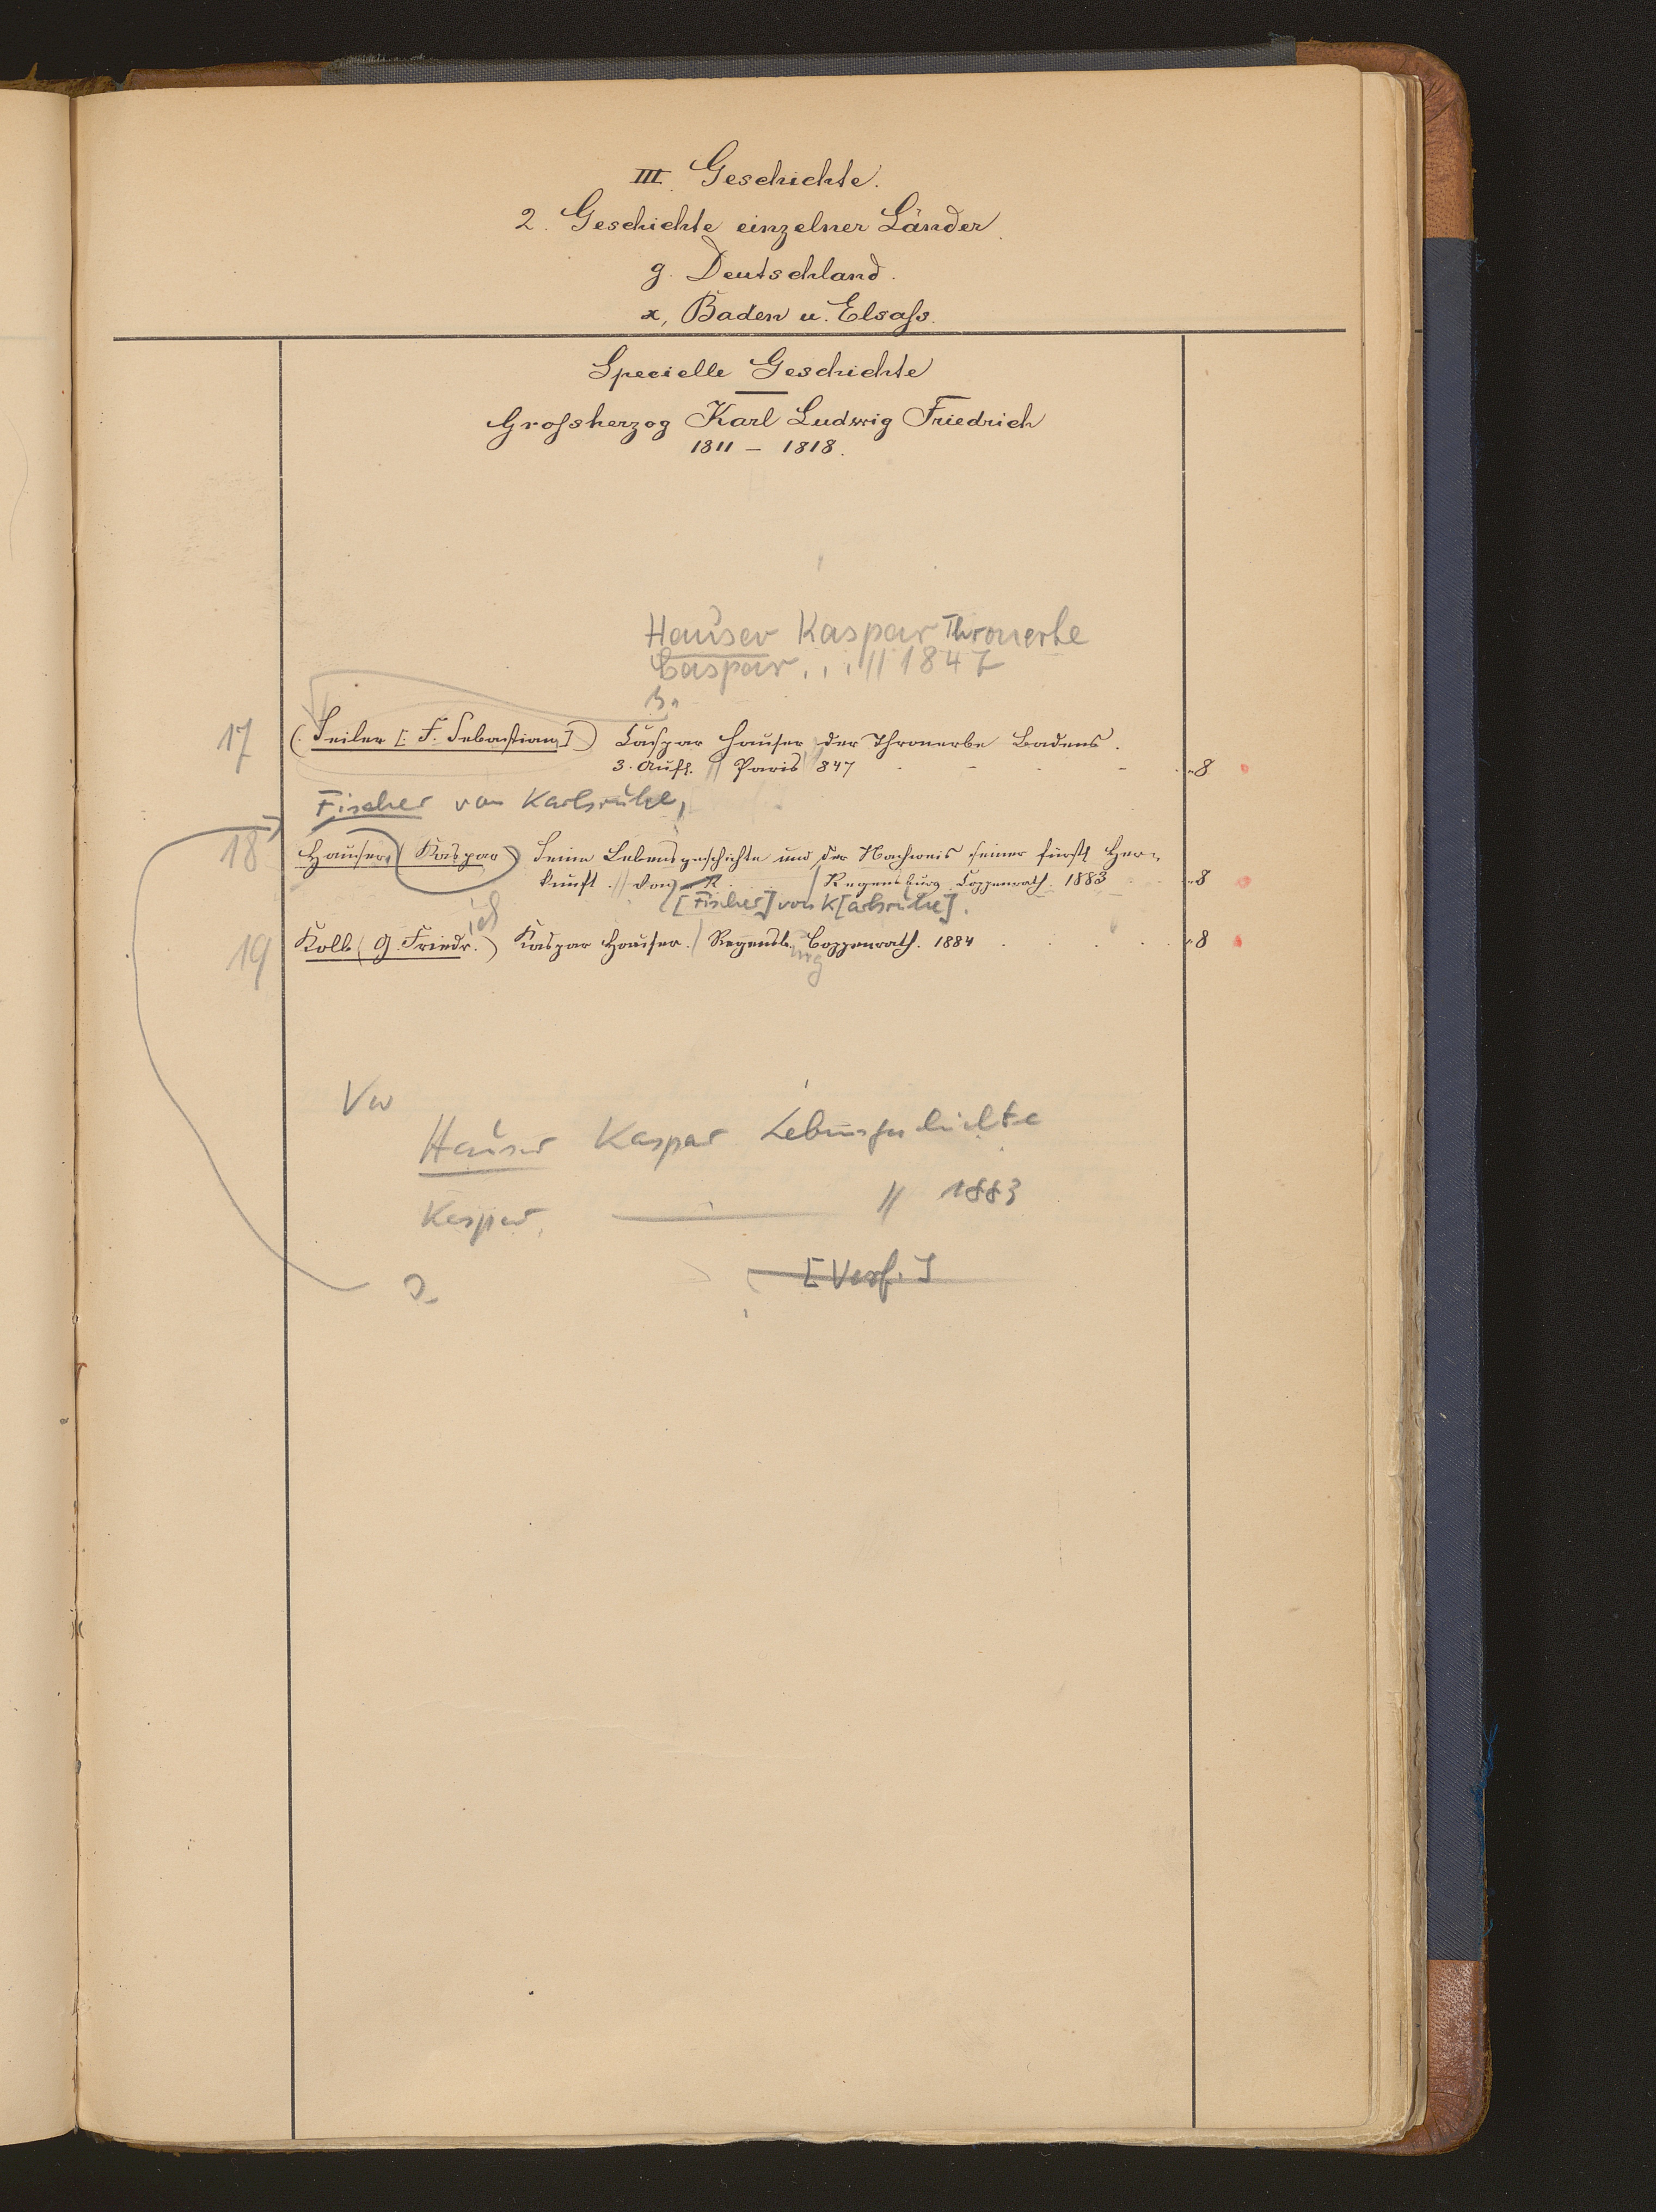 III. Geschichte.
2. Geschichte einzelner Länder.
g. Deutschland.
x, Baden u. Elsaſs.
Specielle Geschichte
Groſsherzog Karl Ludwig Friedrich
1811 – 1818.
Hauser Kaspar Thronerbe
Caspar . . . // 1847
17 (Seiler [F. Sebastian]) Caspar Hauser, der Thronerbe Badens.
3. Aufl. // Paris 847 „8
Fischer von Karlsruhe,
18 Hauser, (Kaspar) Seine Lebensgeschichte und der Nachweis seiner fürstl Her-
kunft. // Von R. / Regensburg. Coppenrath. 1883 „8
[Fischer] von K[arlsruhe].
ich
19 Kolb (G. Friedr.) Kaspar Hauser. / Regensb. Coppenrath. 1884 „8
urg
Vw
Hauser Kaspar Lebensgeschichte
Kaspar — // 1883
[Verf.]